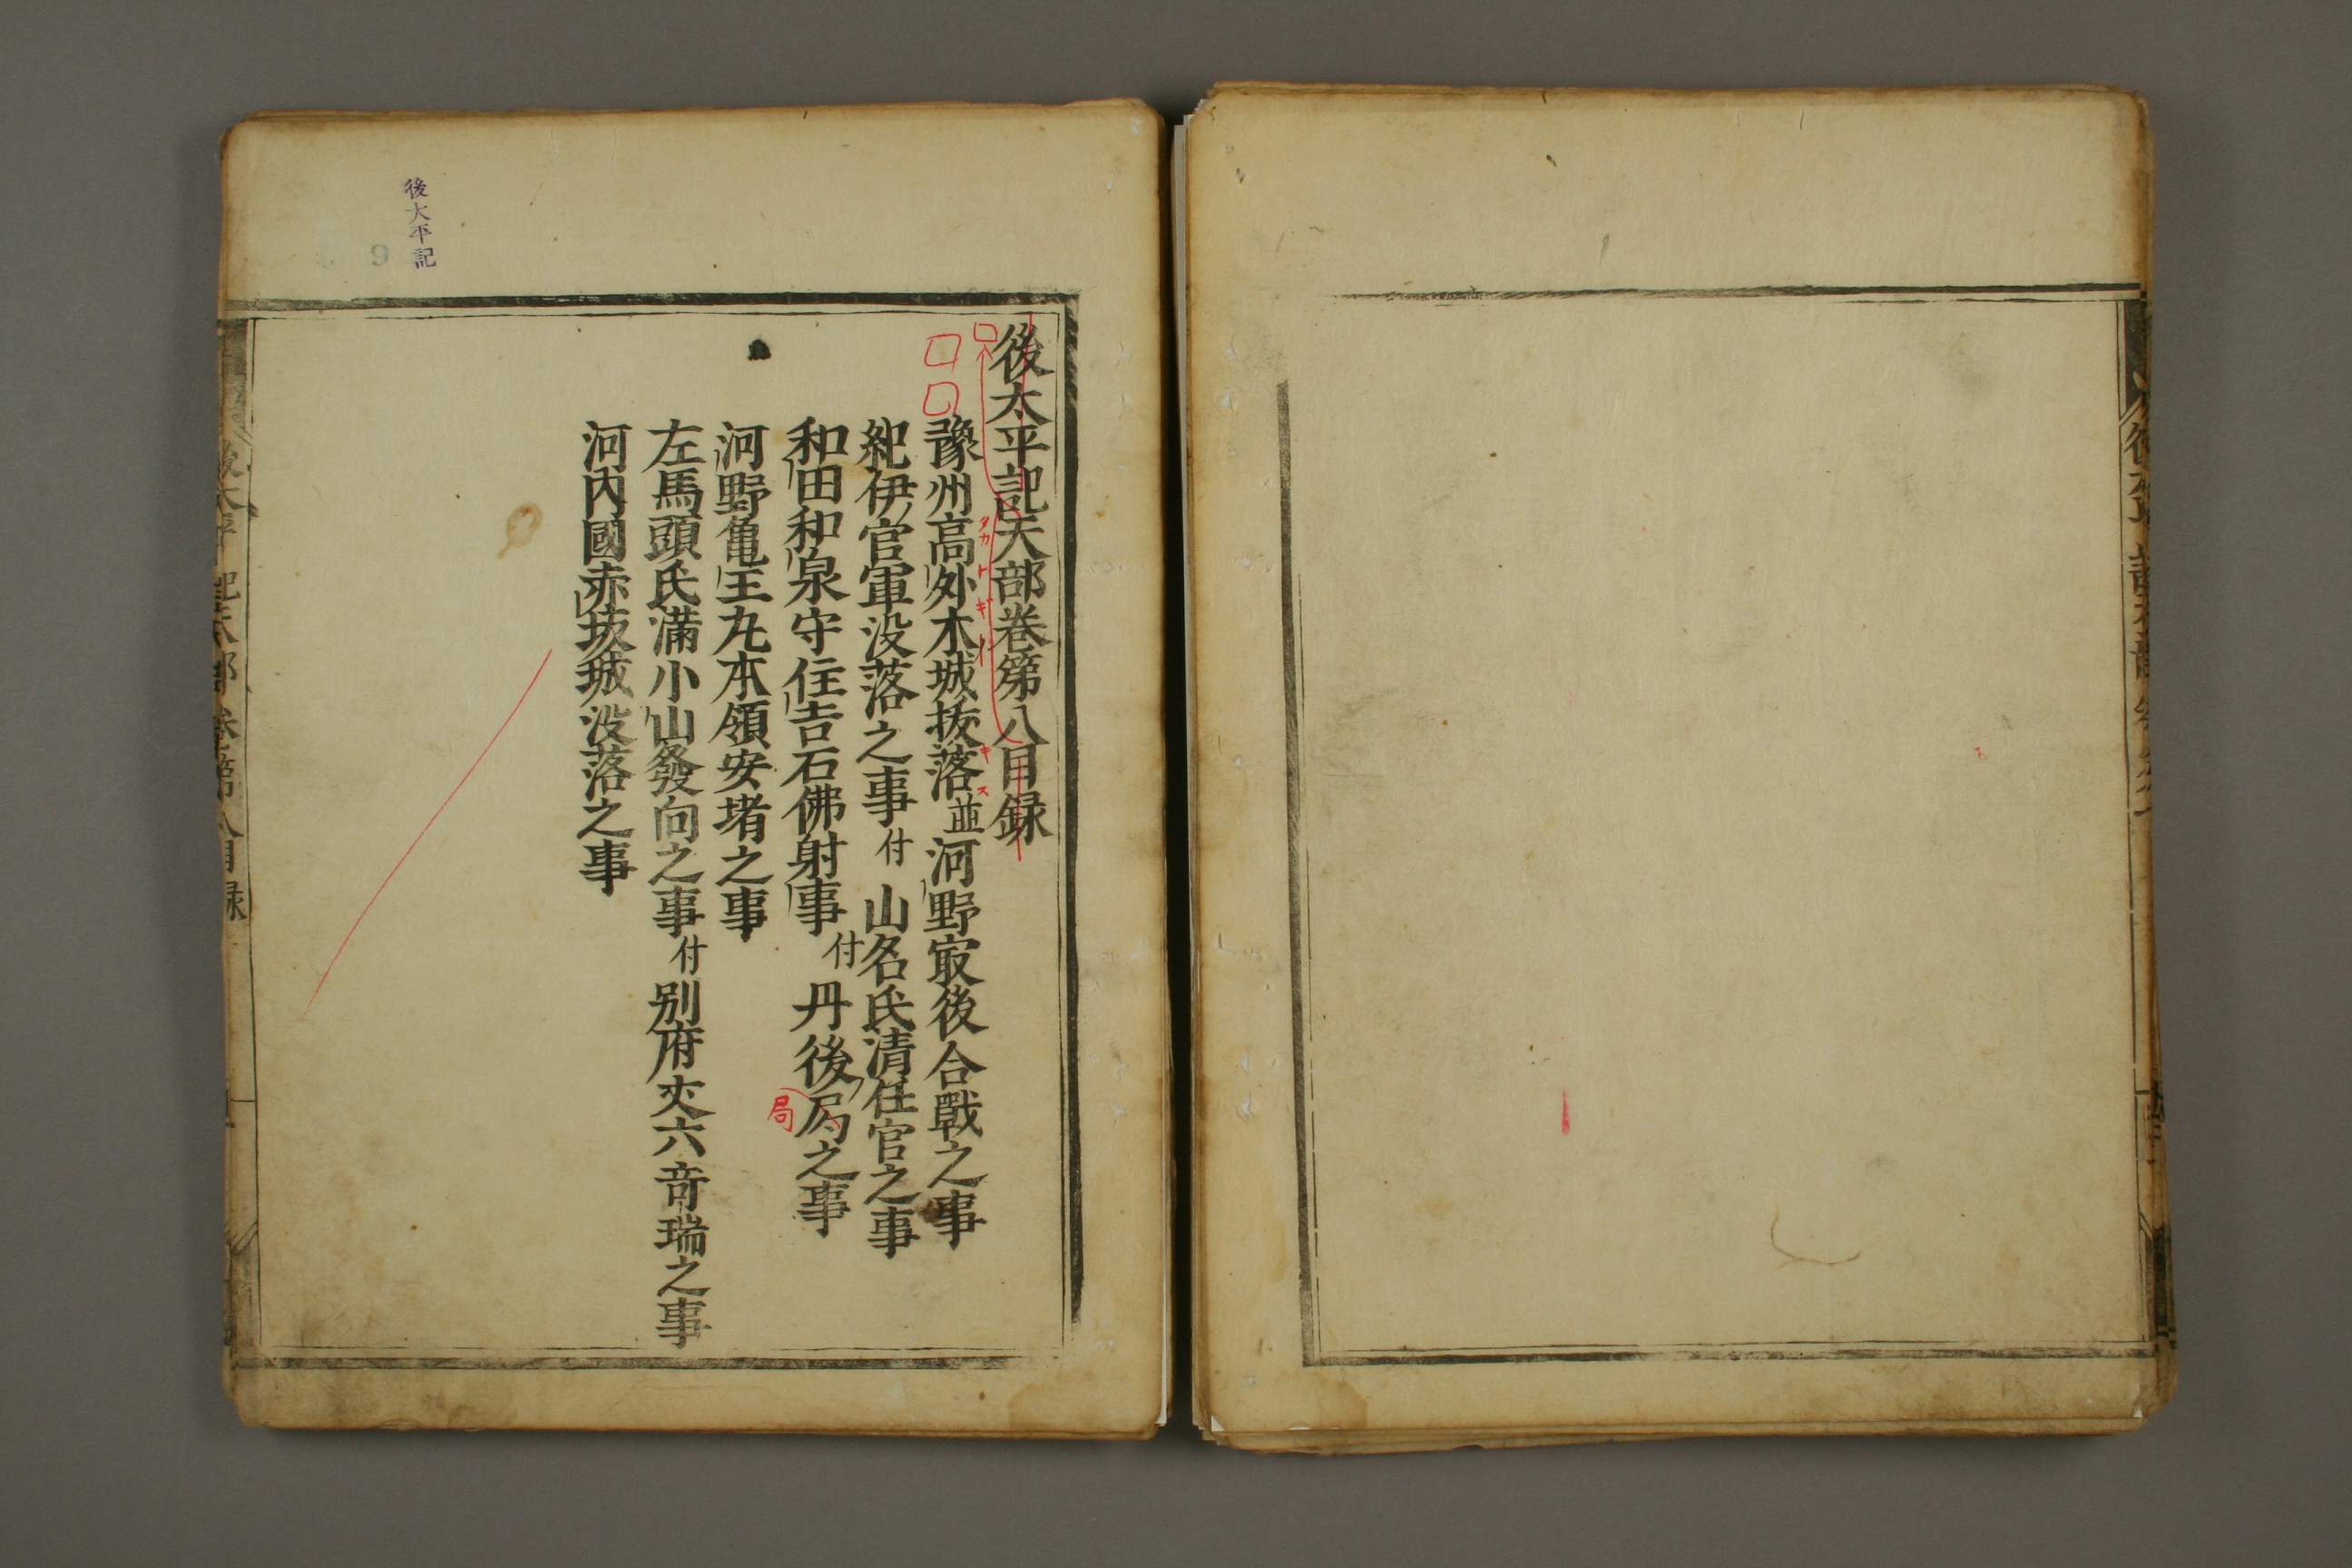 後太平記天部卷第八目録
豫州高外木城拔落並河野㝡後合戰之事
タカトギノキ
紀伊官軍没落之事付山名氏清任官之事
和田和泉守住吉石佛射事付丹後局之事
局
河野亀王丸本領安堵之事
左馬頭氏滿小山發向之事付别府丈六竒瑞之事
河内國赤坂城没落之事
後太平記天部 卷之第八目録
後太平記
9